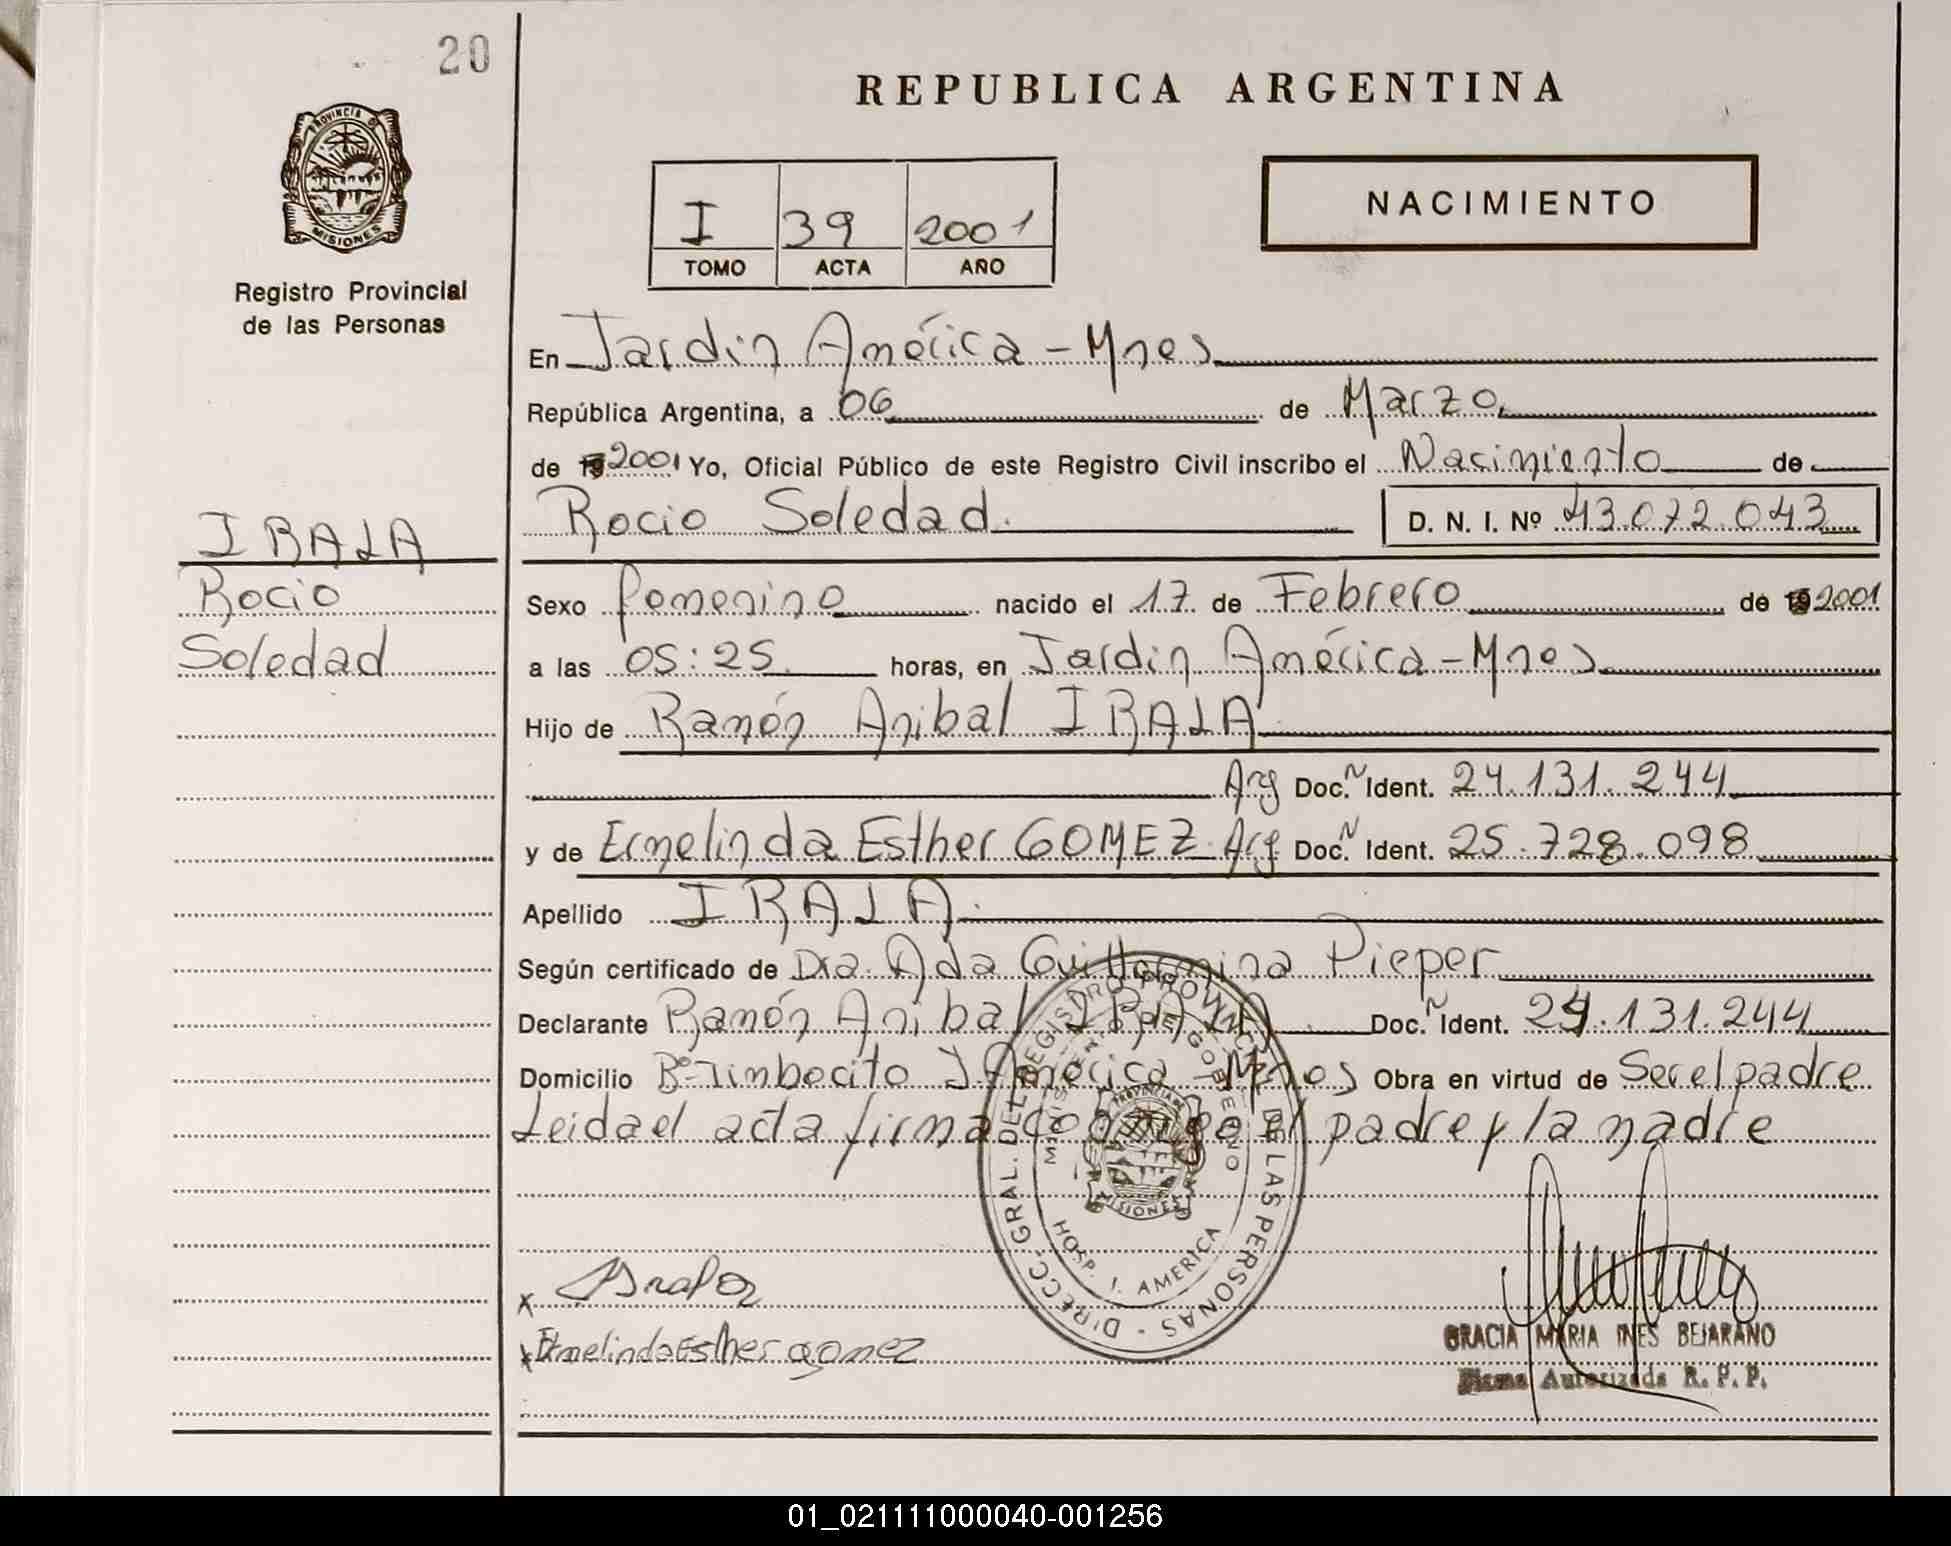 20
REPUBLICA ARGENTINA
PROVINCIA DE
MISIONES
Registro Provincial
de las Personas
I 39 2001
TOMO ACTA AÑO
NACIMIENTO
En Jardin América - Mnes
República Argentina, a 06 de Marzo
de 19 2001 Yo, Oficial Público de este Registro Civil inscribo el Nacimiento de
Rocio Soledad. D. N. I. Nº 43.072.043
IRALA
Rocio
Soledad
Sexo femenino nacido el 17 de Febrero de 19 2001
a las 05:25 horas, en Jardin América - Mnes
Hijo de Ramón Anibal IRALA
Arg Doc. N Ident. 24.131.244
y de Ermelinda Esther GOMEZ. Arg Doc. N Ident. 25.728.098
Apellido IRALA.
Según certificado de Dra. Ada Guillermina Pieper
Declarante Ramón Anibal IRALA Doc. N Ident. 24.131.244
Domicilio Bº Timbocito J. América - Mnes Obra en virtud de Ser el padre
Leida el acta firma conmigo el padre y la madre
DIRECC. GRAL. DEL REGISTRO PROVINCIAL DE LAS PERSONAS
MINISTERIO DE GOBIERNO
PROVINCIA DE
MISIONES
HOSP. J. AMERICA
x
x Ermelinda Esther gomez
GRACIA MARIA INES BEJARANO
Firma Autorizada R. P. P.
01_021111000040-001256